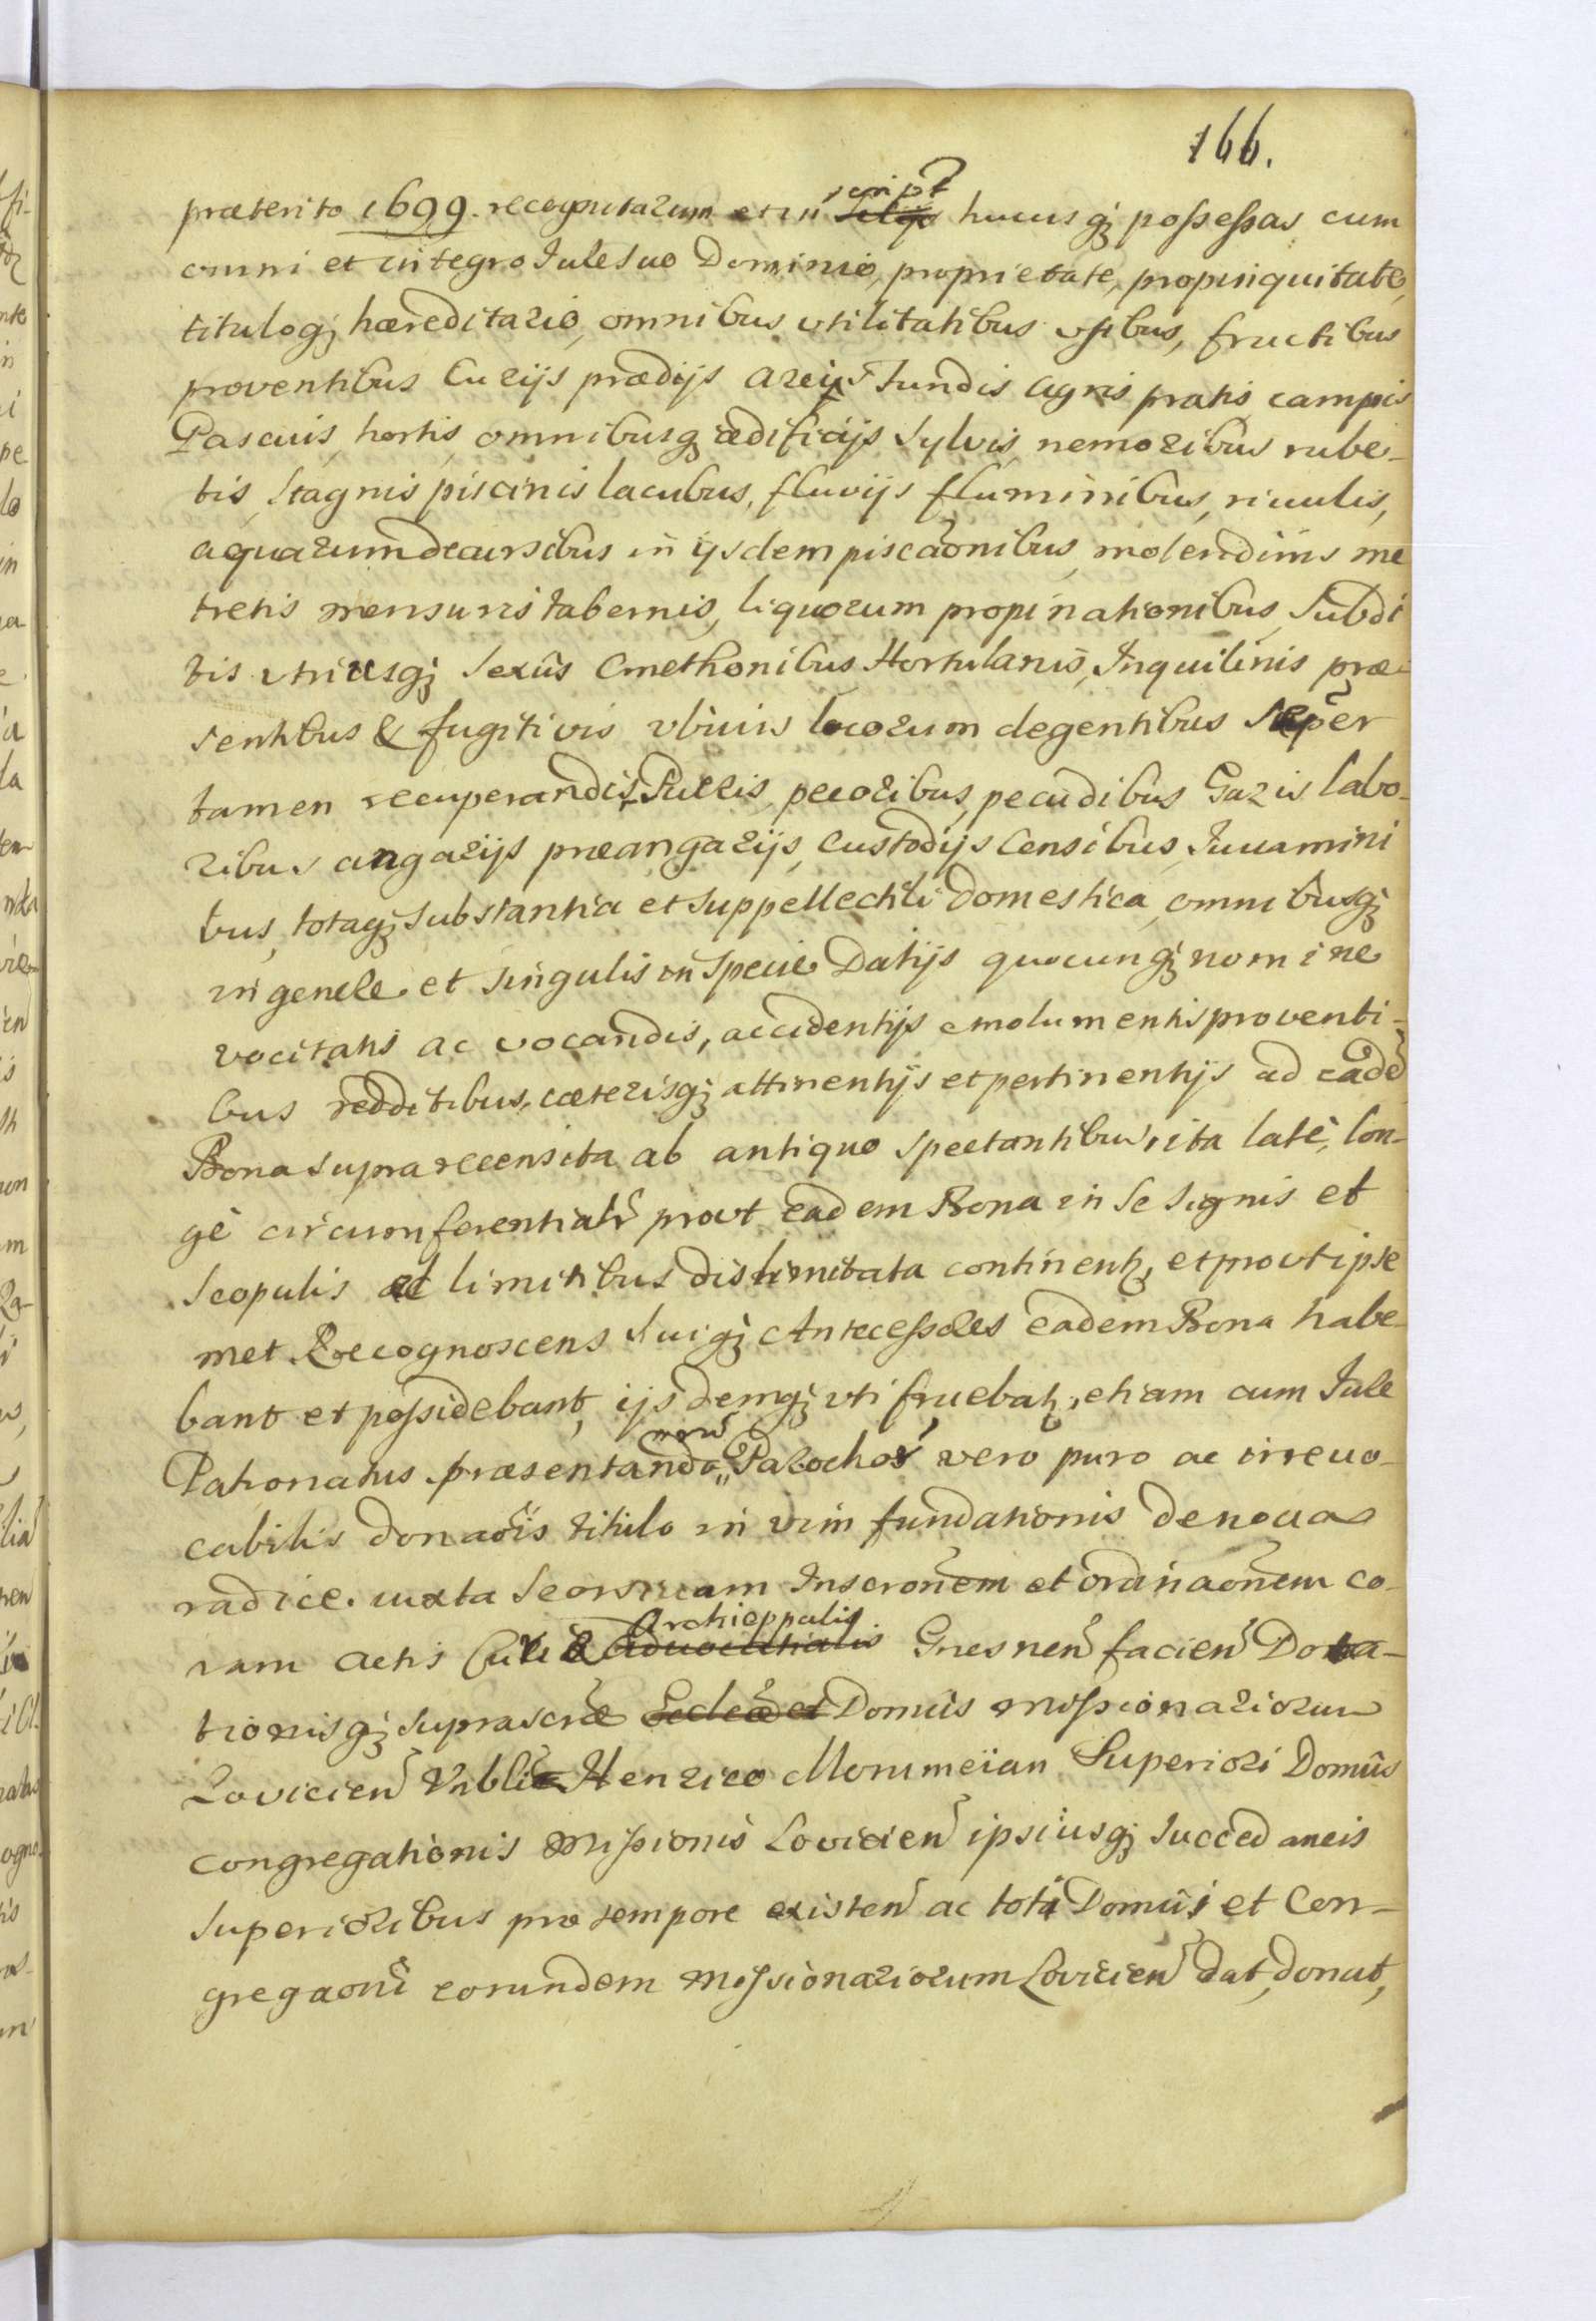 166.
præterito 1699. recomputarum et in script hucusq; possessas cum
omni et integro Iure suo Dominio, proprietate, propinquitate,
tituloq; hæreditario, omnibus vtilitatibus vsibus, fructibus
proventibus Curijs prædijs areis fundis agris pratis campis
Pascuis, hortis, omnibusq; ædificijs Sylvis, nemoribus rube-
tis, Stagnis piscinis lacubus, fluvijs fluminibus, rivulis,
aquarum decursibus in ijsdem piscaõnibus, molendinis me
tretis mensuris tabernis, liquorum propinationibus, Subdi
tis vtriusq; Sexûs Cmethonibus Hortulanis, Inquilinis præ-
sentibus & fugitivis vbivis locorum degentibus
tamen recuperandis, Pullis, pecoribus, pecudibus Gazis labo-
ribus angarijs præangarijs, Custodijs Censibus, Iuvamini
bus, totaq; Substantia et Suppellectili Domestica, omnibusq;
in genere et singulis in Specie Datijs quocunq; nomine
vocitatis ac vocandis, accidentijs emolumentis proventi-
bus redditibus, cæterisq; attinentijs et pertinentijs ad eadẽ
Bona supra recensita ab antiquo spectantibus, ita latè, lon-
gè circumferentialr prout eadem Bona in Se signis et
Scopulis ac limitibus dislimitata continentz, et prout ipse
met Recognoscens Suiq; Antecessores eadem Bona habe-
bant et possidebant, ijsdemq; vti fruebatz, etiam cum Iure
Patronatus præsentando Parochos vero puro ac irrevo-
cabilis donaõis titulo in vim fundationis de nova
radice. iuxta Seorsivam Inscronem et ordinaõnem co-
ram Actis Archieppalis Gnesneñ facieñ Dota-
tionisq; suprascræ Ecclæ et Domûs Missionariorum
Lovicieñ Henrico Monmeïan Superiori Domûs
Congregationis Missionis Lovicieñ ipsiusq; Succedaneis
Superioribus pro tempore existeñ ac toti Domûi et Con-
gregaoni eorundem Missionariorum Lovicieñ dat, donat,